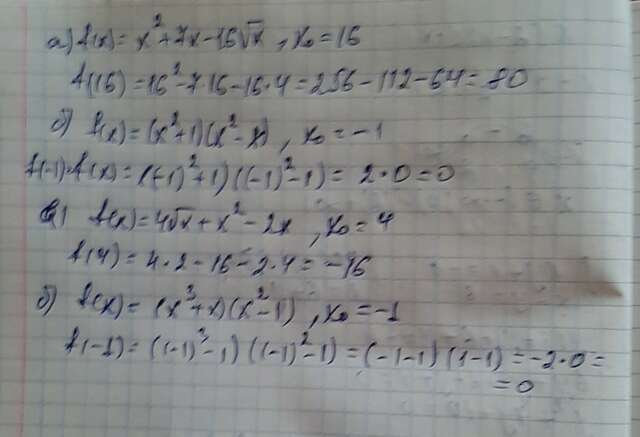 а) f(x) = x² + 7x - 16√x , x₀ = 16
f(16) = 16² - 7·16 - 16·4 = 256 - 112 - 64 = 80
б) f(x) = (x²+1)(x²-x) , x₀ = -1
f(-1)=f(x) = ((-1)²+1) ((-1)²-1) = 2·0 = 0
а) f(x) = 4√x + x² - 2x , x₀ = 4
f(4) = 4·2 - 16 - 2·4 = -16
б) f(x) = (x³+x)(x²-1) , x₀ = -1
f(-1) = ((-1)³-1) ((-1)²-1) = (-1-1) (1-1) = -2·0 =
= 0